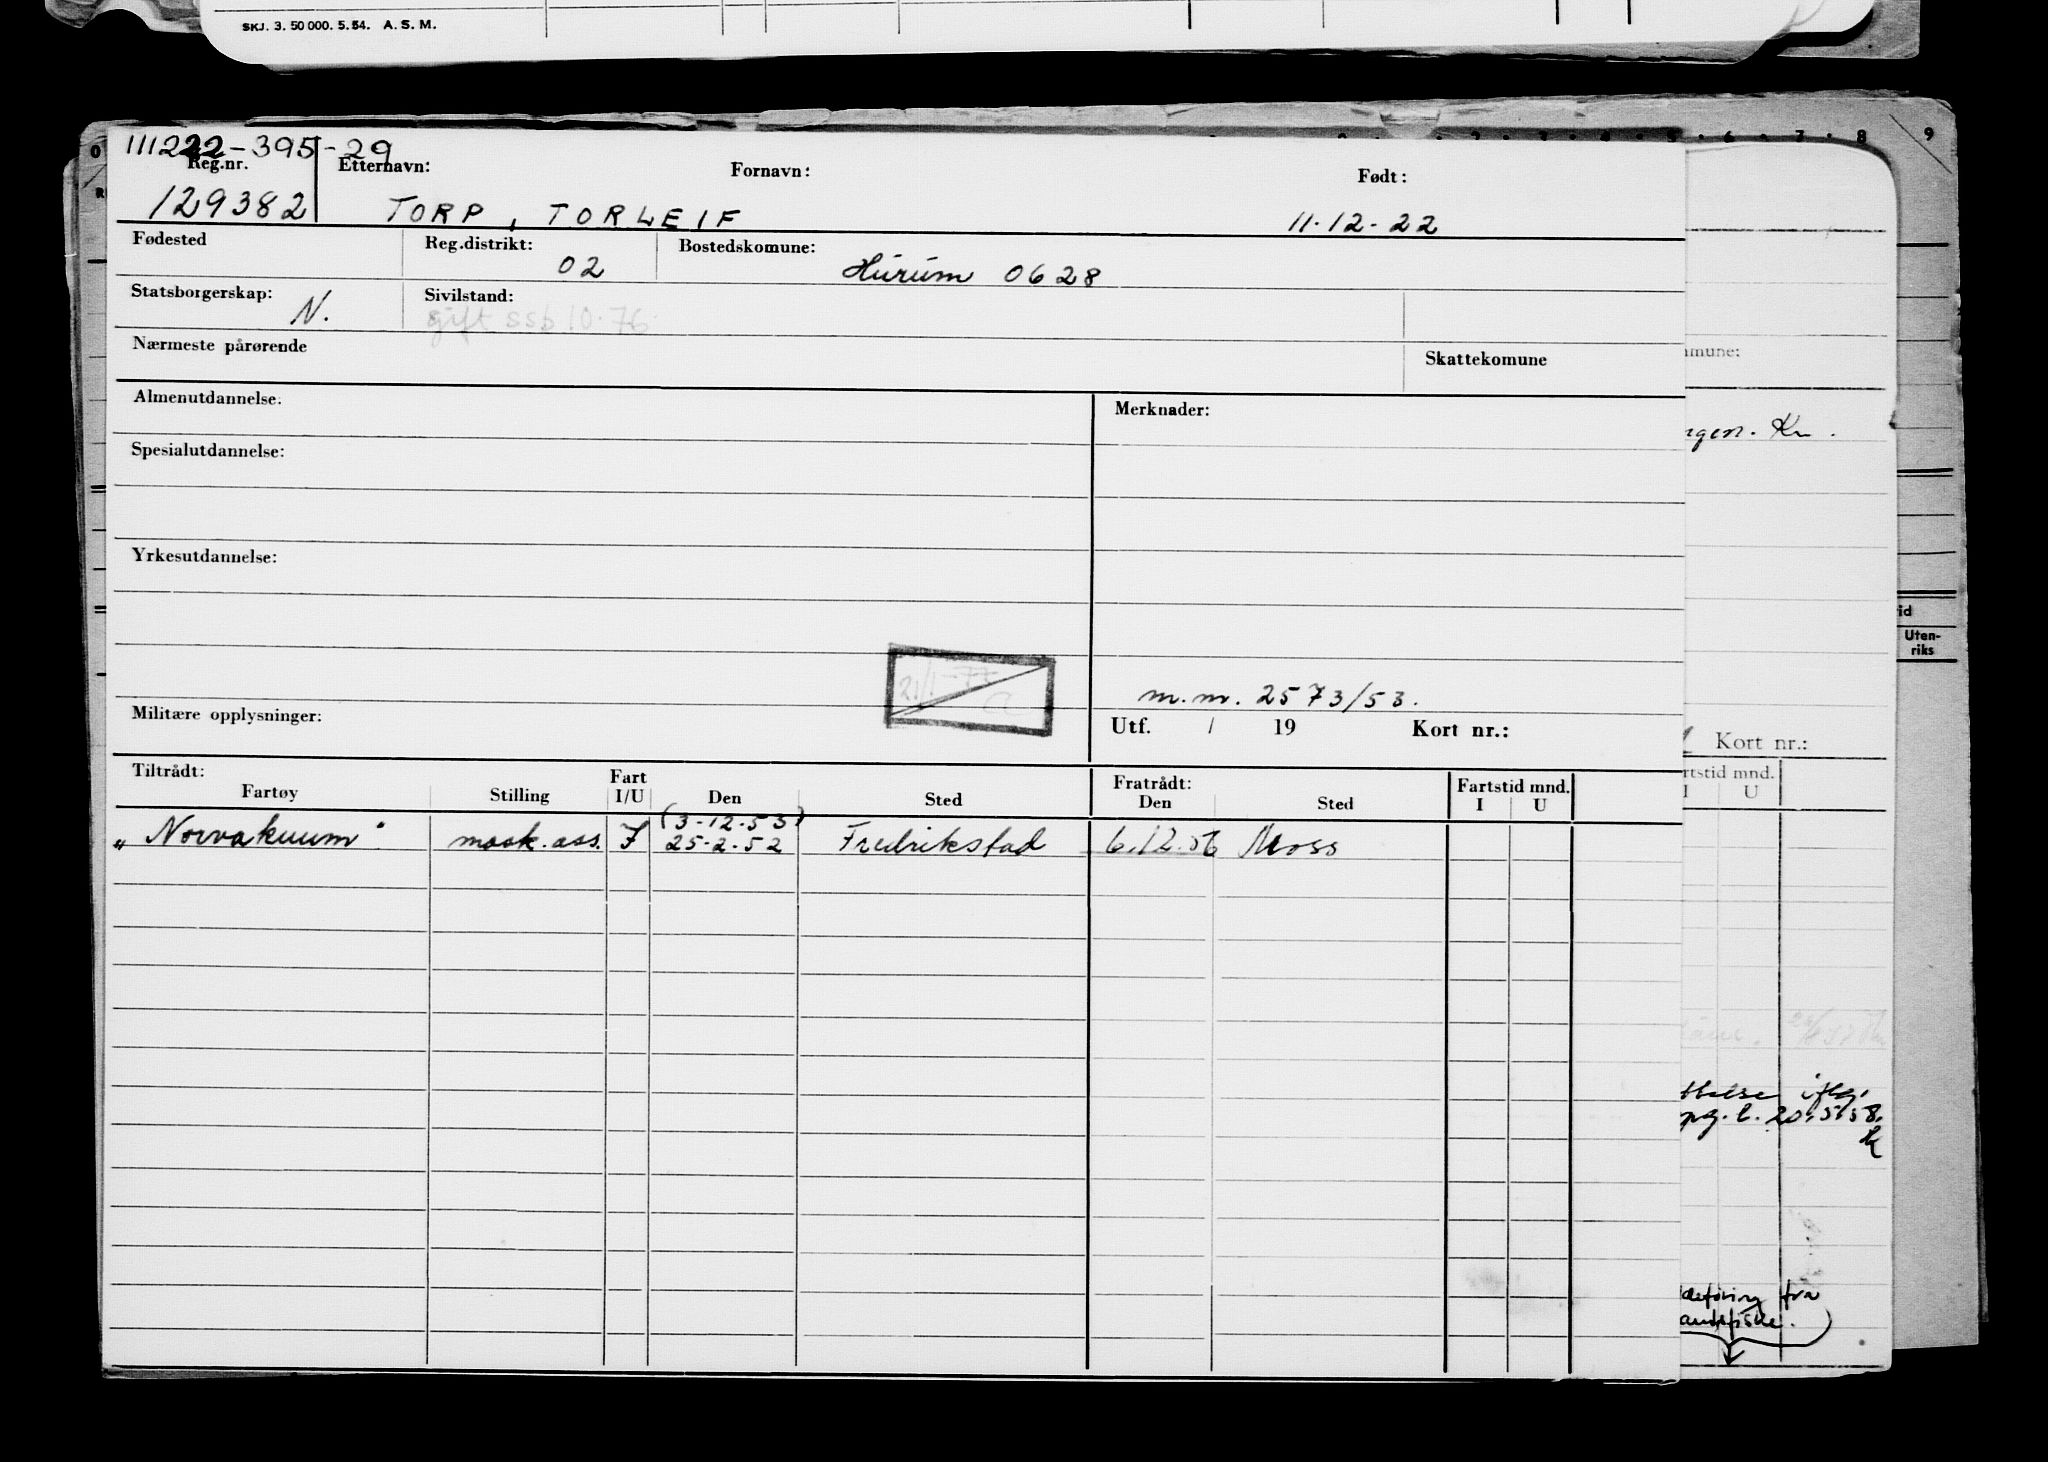 SKJ. 3. 50 000. 5. 54. A. S. M.
111222-395-29
Reg.nr. Etternavn: Fornavn: Født:
129382 TORP, TORLEIF 11-12-22
Fødested Reg.distrikt: Bostedskomune:
02 Hurum 0628
Statsborgerskap: Sivilstand:
N. gift ssb 10.76
Nærmeste pårørende Skattekomune
mmune:
Almenutdannelse: Merknader:
ngen. Kr.
Spesialutdannelse:
Yrkesutdannelse:
id
Uten-
riks
21/1-77
m.m. 2573/53.
Militære opplysninger: Utf. / 19 Kort nr.:
Kort nr.:
Tiltrådt: Fratrådt: Fartstid mnd.
rtstid mnd.
Fartøy Stilling Fart I/U Den Sted Den Sted I U
I U
(3-12-53)
„Norvakuum" mask.ass. F 25-2-52 Fredrikstad 6.12.56 Moss
ttelse iflg.
20.5.58.
fra